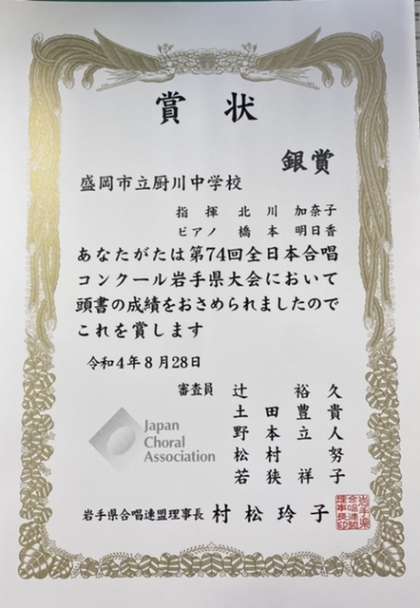 賞状
銀賞
盛岡市立厨川中学校
指揮 北川 加奈子
ピアノ 橋本 明日香
あなたがたは第74回全日本合唱
コンクール岩手県大会において
頭書の成績をおさめられましたので
これを賞します
令和4年8月28日
審査員 辻 裕久
土田豊貴
野本立人
松村 努
若狭祥子
Japan
Choral
Association
岩手県合唱連盟理事長 村松玲子
岩手県
合唱連盟
理事長印